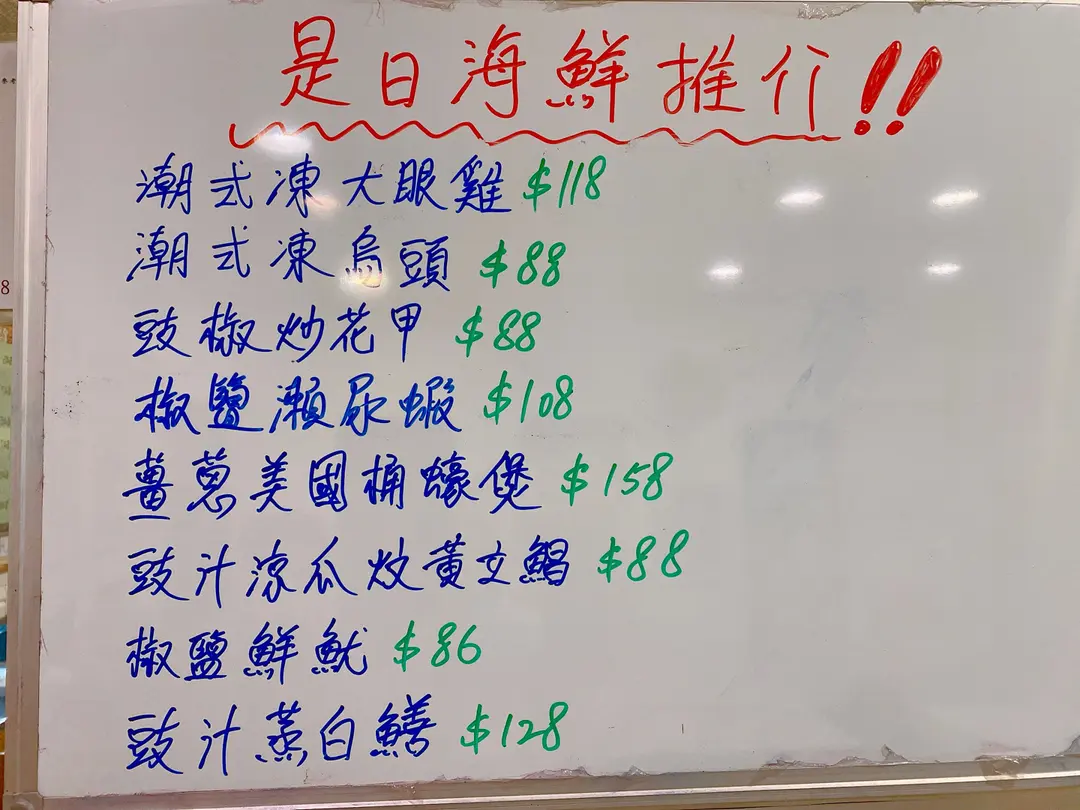 是日海鮮推介!!
潮式凍大眼雞 $118
潮式凍烏頭 $88
豉椒炒花甲 $88
椒鹽瀨尿蝦 $108
薑蔥美國桶蠔煲 $158
豉汁涼瓜炆黃文鱨 $88
椒鹽鮮魷 $86
豉汁蒸白鱔 $128
8